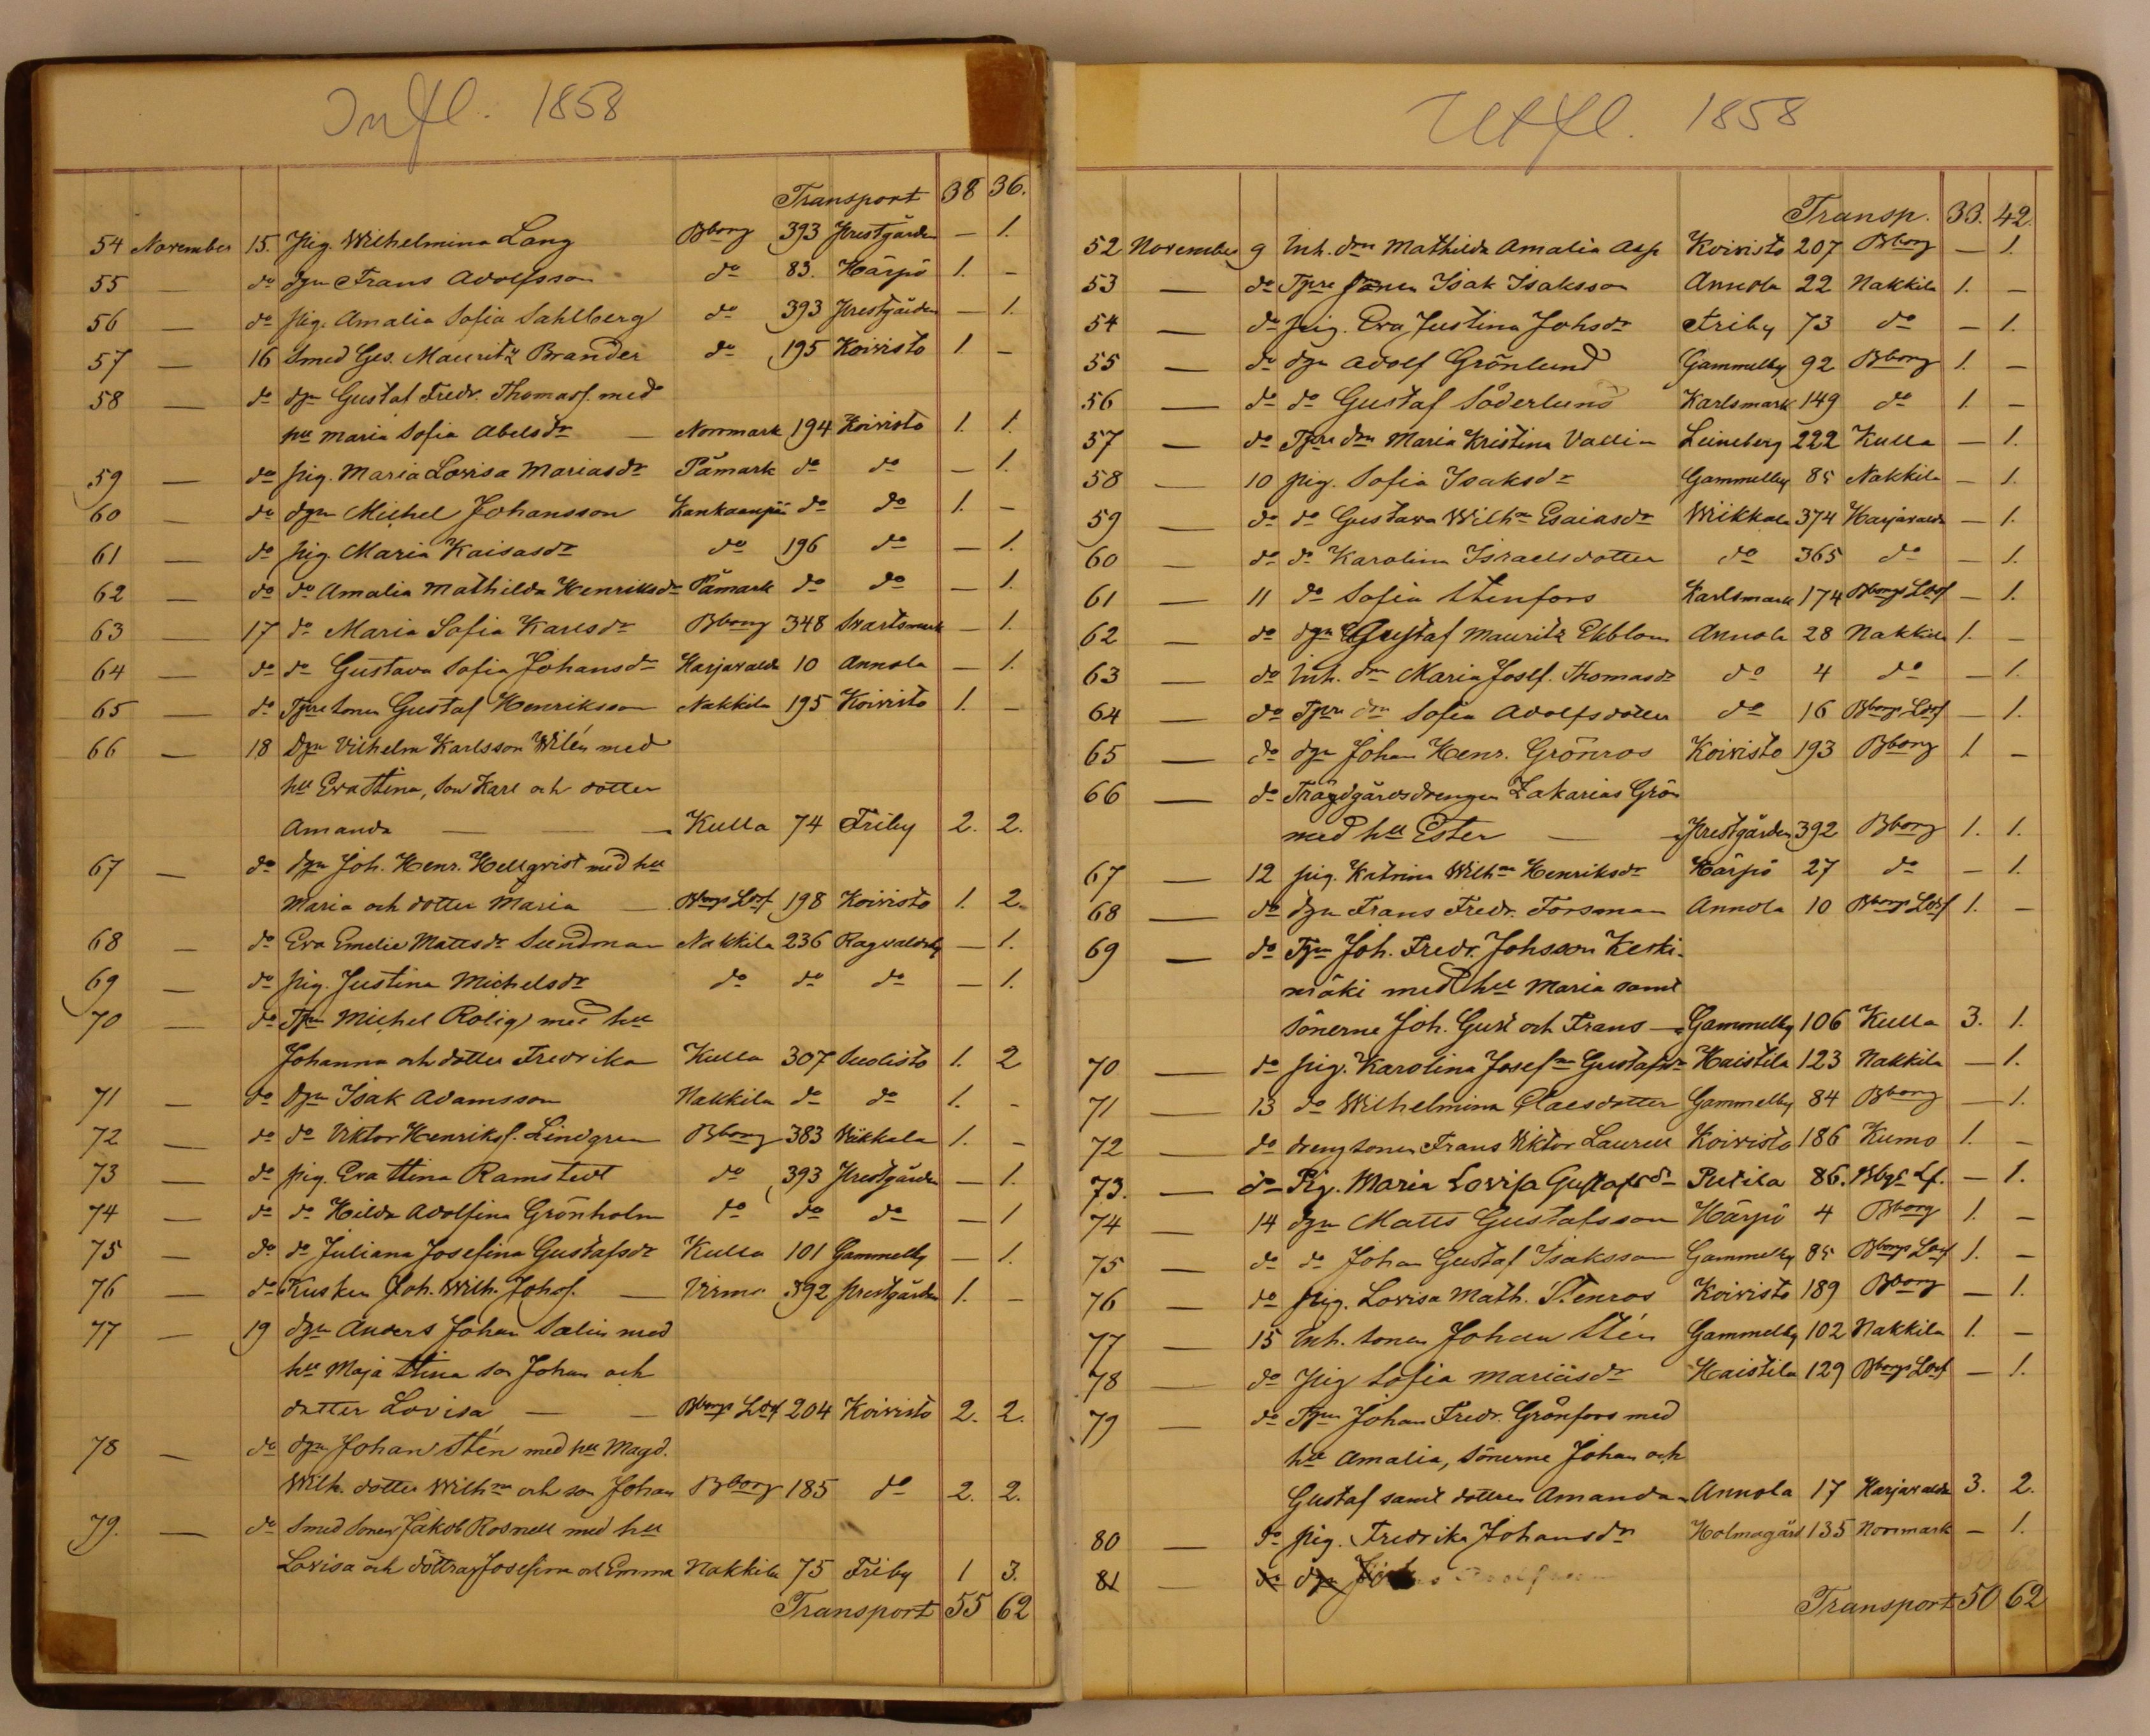 Infl. 1858
Transport 38 36.
54 November 15. Pig. Wilhelmina Lang Bborg 393 Prestgården — 1.
55 — do dgn Frans Adolfsson do 83. Härpö 1. —
56 — do pig. Amalia Sofia Sahlberg do 393 Prestgården — 1.
57 — 16 Smed Ges. Mauritz Brander do 195 Koivisto 1. —
58 — do dgn Gustaf Fredr. Thomass. med
hu Maria Sofia Abelsdr — Norrmark 194 Koivisto 1. 1.
59 — do pig. Maria Lovisa Mariasdr Påmark do do — 1.
60 — do dgn Michel Johansson Kankaanpää do do 1. —
61 — do pig. Maria Kaisasdr do 196 do — 1.
62 — do do Amalia Mathilda Henriksdr Påmark do do — 1.
63 — 17 do Maria Sofia Karlsdr Bborg 348 Svartsmark — 1.
64 — do do Gustava Sofia Johansdr Harjavalda 10 Annola — 1.
65 — do Tpre sonen Gustaf Henriksson Nakkila 195 Koivisto 1. —
66 — 18 Dgn Vilhelm Karlsson Wilén med
hu Eva Stina, son Karl och dotter
Amanda — — Kulla 74 Friby 2. 2.
67 — do dgn Joh. Henr. Hellqvist med hu
Maria och dotter Maria — Bborgs Ldsf 198 Koivisto 1. 2.
68 — do Eva Emelie Mattsdr Sundman Nakkila 236 Ragvaldsby — 1.
69 — do pig. Justina Michelsdr do do do — 1.
70 — do Tpn Michel Rolig med hu
Johanna och dotter Fredrika Kulla 307 Suolisto 1. 2
71 — do dgn Isak Adamsson Nakkila do do 1. -
72 — do do Viktor Henriksf. Lindgren Bborg 383 Wikkala 1. -
73 — do pig. Eva Stina Ramstedt do 393 Prestgården — 1.
74 — do do Hilda Adolfina Grönholm do do do — 1
75 — do do Juliana Josefina Gustafsdr Kulla 101 Gammelby — 1.
76 — do Kusken Joh. Wilh. Johsf. — Virmo 392 Prestgården 1. -
77 — 19 dgn Anders Johan Salin med
hu Maja Stina son Johan och
dotter Lovisa — — Bborgs Ldsf 204 Koivisto 2. 2.
78 — do dgn Johan Stén med hu Magd.
Wilh. dotter Wilhna och son Johan Bborg 185 do 2. 2.
79. — do Smed sonen Jakob Rosnell med hu
Lovisa och döttrar Josefina och Emma Nakkila 75 Friby 1 3.
Transport 55 62
Utfl. 1858
Transp. 33. 42.
52 November 9 Inh. drn Mathilda Amalia Asp Koivisto 207 Bborg — 1.
53 — do Tpre sonen Isak Isaksson Annola 22 Nakkila 1. —
54 — do pig. Eva Justina Johsdr Friby 73 do — 1.
55 — do dgn Adolf Grönlund Gammelby 92 Bborg 1. —
56 — do do Gustaf Söderlund Karlsmark 149 do 1. —
57 — do Tpre drn Maria Kristina Vallin Leineberg 222 Kulla — 1.
58 — 10 pig. Sofia Isaksdr Gammelby 85 Nakkila — 1.
59 — do do Gustava Wilhna Esaiasdr Wikkala 374 Harjavalda — 1.
60 — do do Karolina Israelsdotter do 365 do — 1.
61 — 11 do Sofia Stenfors Karlsmark 174 Bborgs Ldsf — 1.
62 — do dgn Gustaf Mauritz Ekblom Annola 28 Nakkila 1. —
63 — do Inh. drn Maria Josef. Thomasdr do 4 do — 1.
64 — do Tpre drn Sofia Adolfsdotter do 16 Bborgs Ldsf — 1.
65 — do dgn Johan Henr. Grönros Koivisto 193 Bborg 1 —
66 — do Trägdgårdsdrengen Zakarias Grön
med hu Ester — Prestgården 392 Bborg 1. 1.
67 — 12 pig. Katrina Wilhna Henriksdr Härpö 27 do — 1.
68 — do dgn Frans Fredr. Forsman Annola 10 Bborgs Ldsf 1. —
69 — do Tpn Joh. Fredr. Johsson Keski-
mäki med hu Maria samt
sönerne Joh. Gust och Frans — Gammelby 106 Kulla 3. 1.
70 — do pig. Karolina Josefna Gustafsdr Haistila 123 Nakkila — 1.
71 — 13 do Wilhelmina Claesdotter Gammelby 84 Bborg — 1.
72 — do dreng sonen Frans Viktor Laurell Koivisto 186 Kumo 1. —
73. — do Pig. Maria Lovisa Gustafsdr Putila 86. Bbgs Lf. — 1.
74 — 14 dgn Matts Gustafsson Härpö 4 Bborg 1. —
75 — do do Johan Gustaf Isaksson Gammelby 85 Bborgs Ldsf 1. —
76 — do pig. Lovisa Math. Stenros Koivisto 189 Bborg — 1.
77 — 15 Inh. sonen Johan Stén Gammelby 102 Nakkila 1. —
78 — do pig Sofia Mariasdr Haistila 129 Bborgs Ldsf — 1.
79 — do Tpn Johan Fredr. Grönfors med
hu Amalia, sönerne Johan och
Gustaf samt dottren Amanda Annola 17 Harjavalda 3. 2.
80 — do pig. Fredrika Johansdr Holmagård 135 Norrmark — 1.
81 — do dgn
Transport 50 62